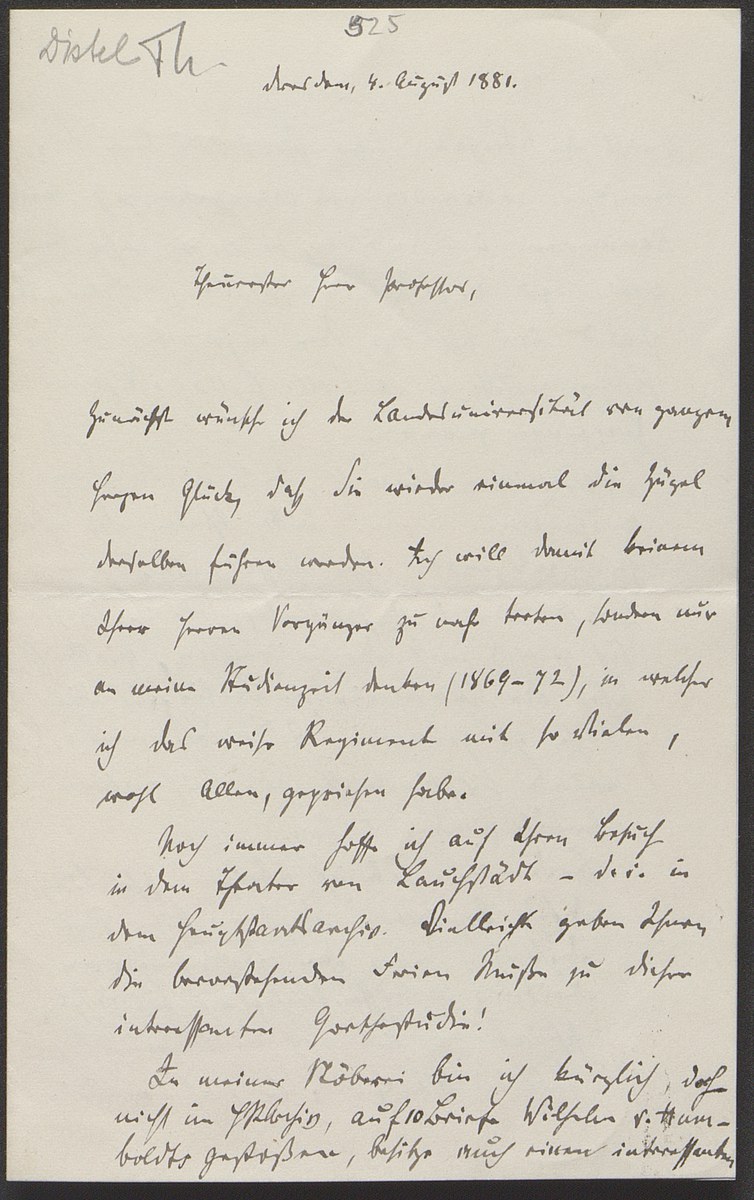 525
Distel Th.
Dresden, 4. August 1881.
Theuerster Herr Professor,
Zunächst wünsche ich der Landesuniversität von ganzem
Herzen Glück, daß Sie wieder einmal die Zügel
derselben führen werden. Ich will damit keinem
Ihrer Herren Vorgänger zu nahe treten, sondern nur
an meine Studienzeit denken (1869-72), in welcher
ich das weise Regiment mit so Vielen,
wohl Allen, gepriesen habe.
Noch immer hoffe ich auf Ihren Besuch
in dem Theater von Lauchstädt - d. i. in
dem Hauptstaatsarchiv. Vielleicht geben Ihnen
die bevorstehenden Ferien Muße zu dieser
interessanten Goethestudie!
In meiner Stöberei bin ich kürzlich, doch
nicht im HStArchiv, auf 10 Briefe Wilhelm v. Hum-
boldts gestoßen, besitze auch einen interessanten